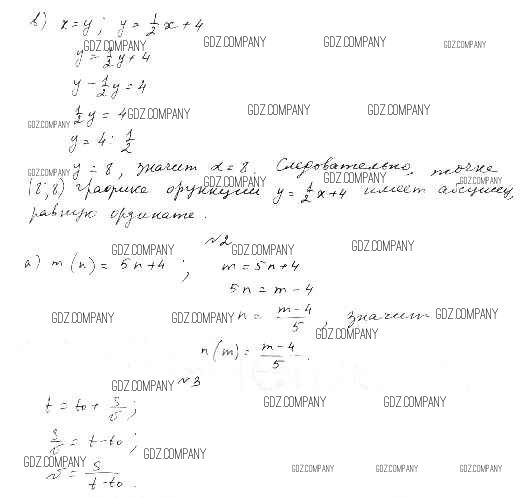 в) x = y; y = 1/2 x + 4
GDZ.COMPANY GDZ.COMPANY GDZ.COMPANY GDZ.COMPANY
y = 1/2 y + 4
y - 1/2 y = 4
1/2 y = 4
GDZ.COMPANY GDZ.COMPANY GDZ.COMPANY GDZ.COMPANY
y = 4 : 1/2
y = 8, значит x = 8. Следовательно, точка
GDZ.COMPANY GDZ.COMPANY GDZ.COMPANY GDZ.COMPANY
(8; 8) графика функции y = 1/2 x + 4 имеет абсциссу,
равную ординате.
№2
GDZ.COMPANY GDZ.COMPANY GDZ.COMPANY
а) m(n) = 5n + 4; m = 5n + 4
5n = m - 4
n = (m - 4)/5, значит
GDZ.COMPANY GDZ.COMPANY GDZ.COMPANY GDZ.COMPANY
n(m) = (m - 4)/5.
№3
GDZ.COMPANY GDZ.COMPANY GDZ.COMPANY
t = t0 + S/v;
S/v = t - t0;
GDZ.COMPANY GDZ.COMPANY GDZ.COMPANY GDZ.COMPANY GDZ.COMPANY
v = S/(t - t0).